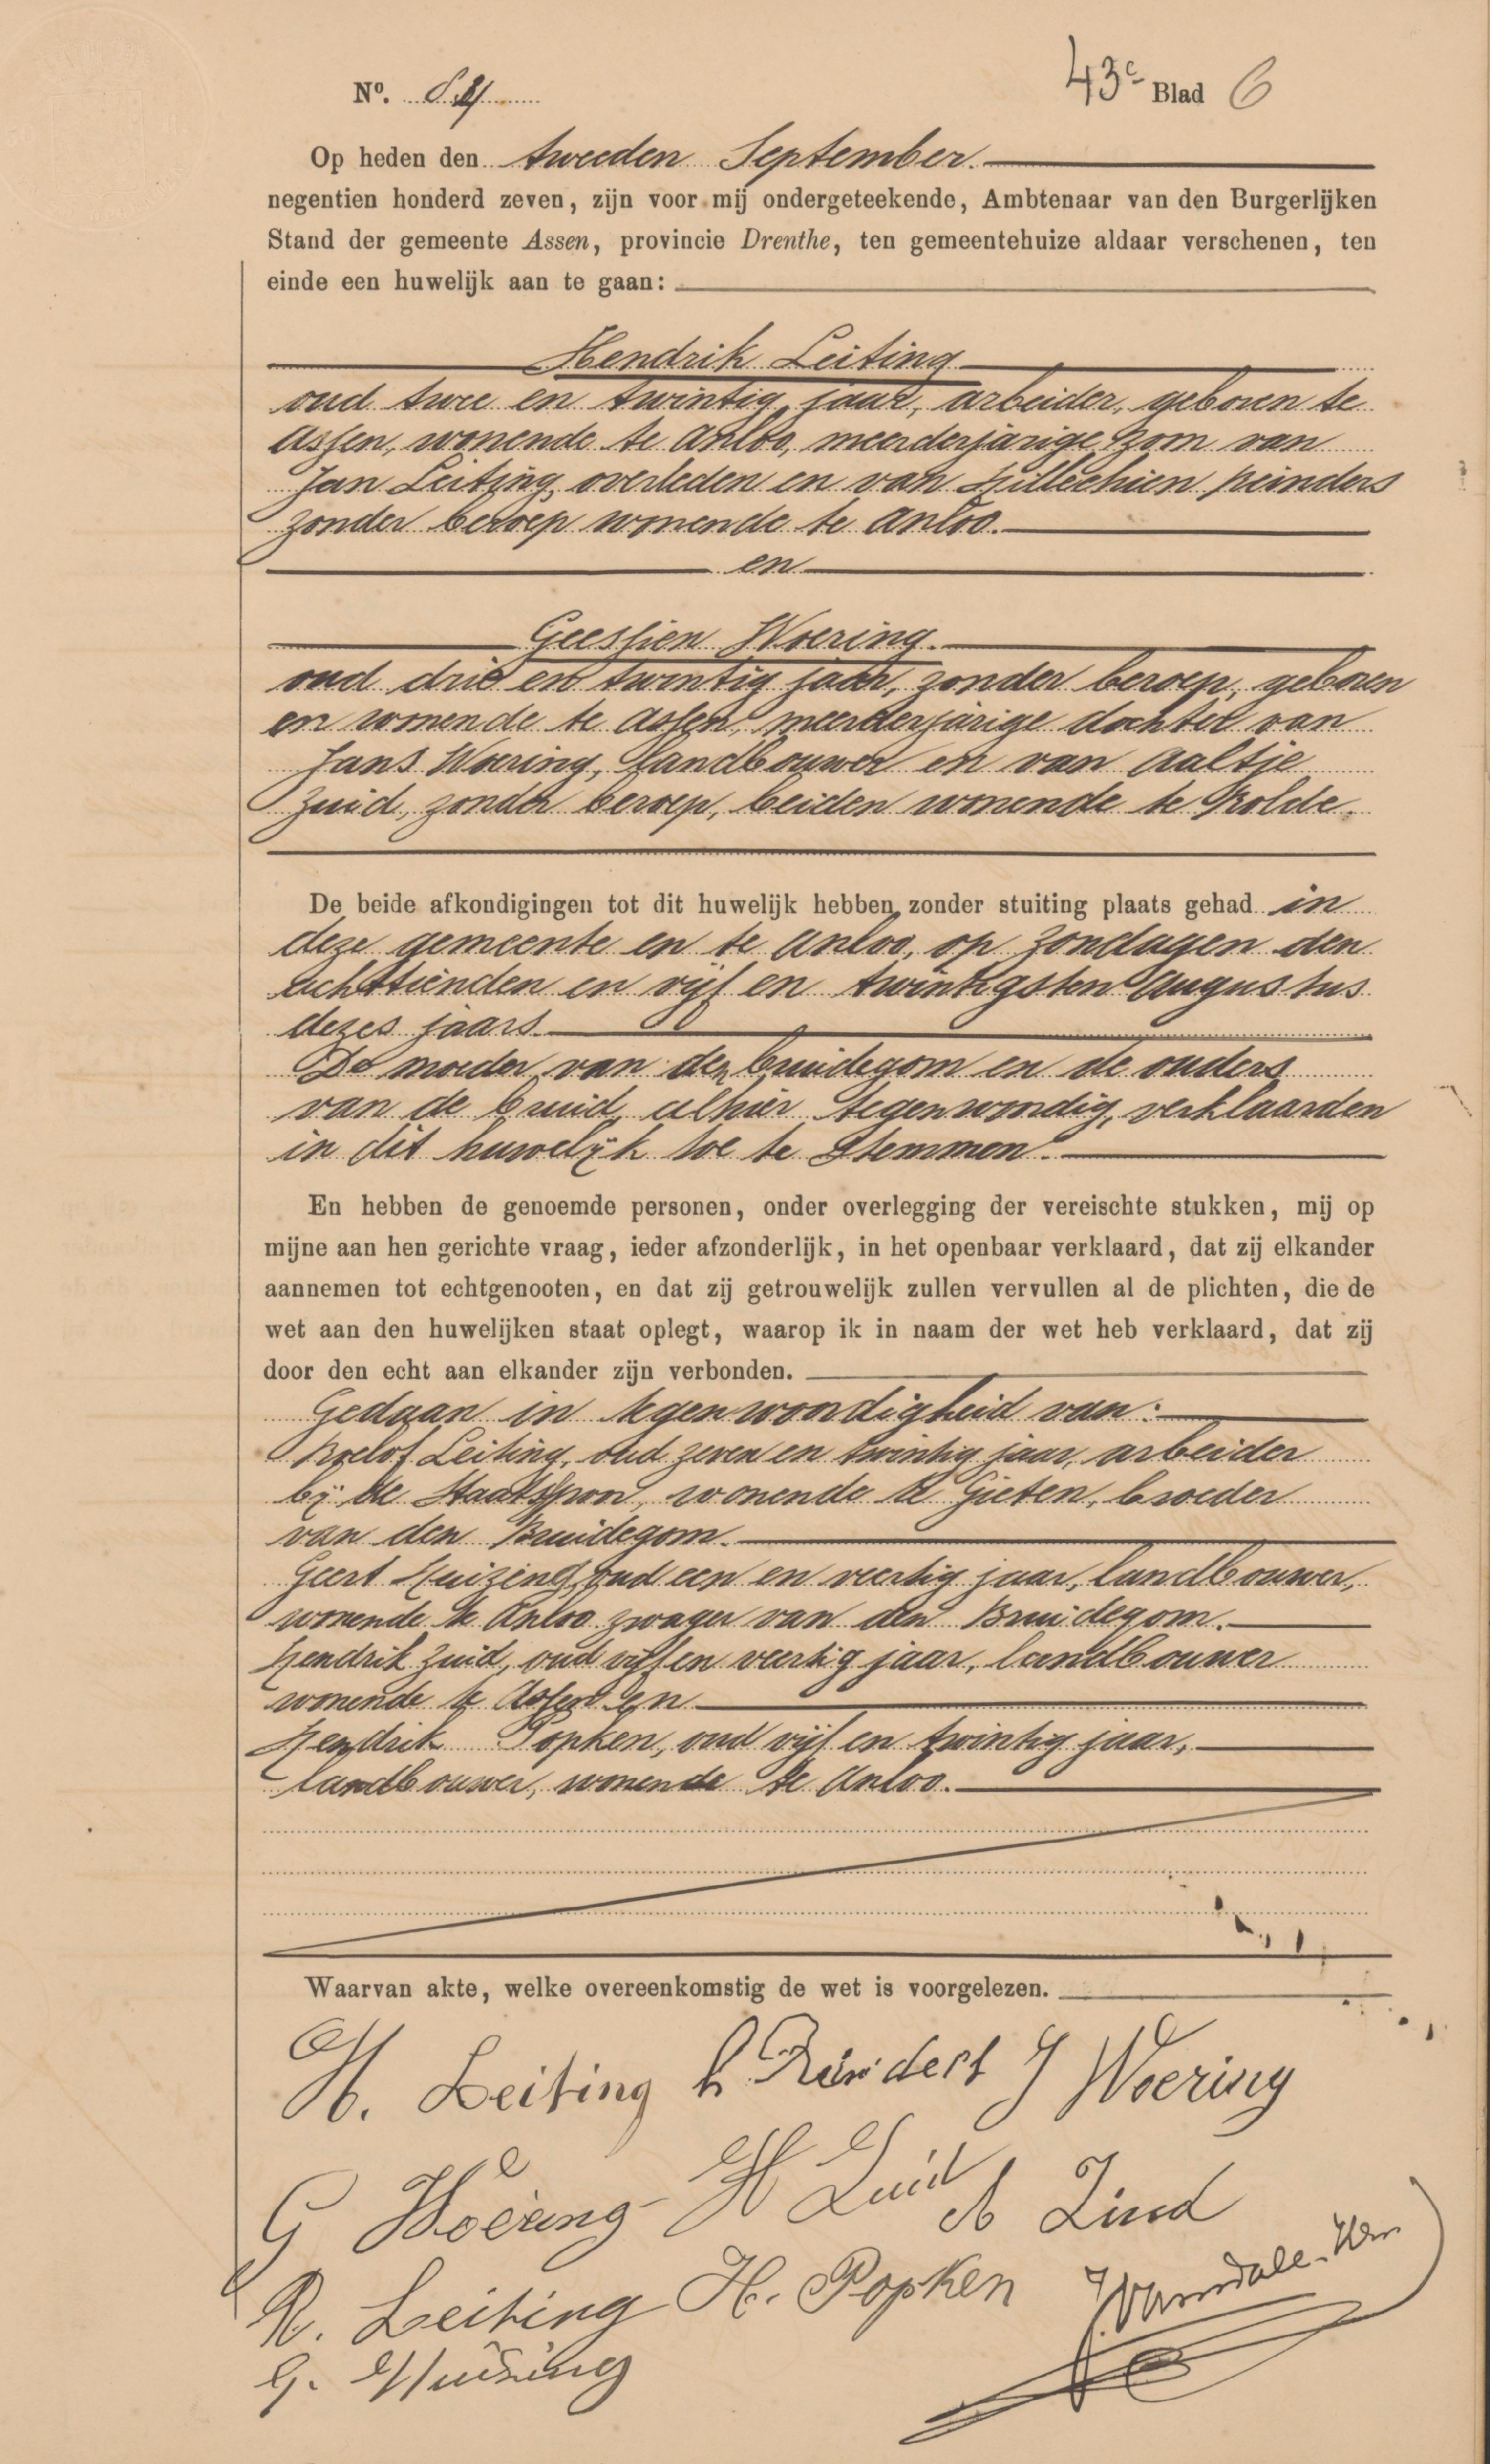 Nº. 84 43c Blad 6
Op heden den tweeden September.
negentien honderd zeven, zijn voor mij ondergeteekende, Ambtenaar van den Burgerlijken
Stand der gemeente Assen, provincie Drenthe, ten gemeentehuize aldaar verschenen, ten
einde een huwelijk aan te gaan:
Hendrik Leiting
oud twee en twintig jaar, arbeider, geboren te
Assen, wonende te Anloo, meerderjarige zoon van
Jan Leiting, overleden en van Hillechien Reinders
zonder beroep wonende te Anloo.
en
Geessien Woering.
oud drie en twintig jaar, zonder beroep, geboren
en wonende te Assen, meerderjarige dochter van
Jans Woering, landbouwer en van Aaltje
Zuid, zonder beroep, beiden wonende te Rolde.
De beide afkondigingen tot dit huwelijk hebben zonder stuiting plaats gehad in
deze gemeente en te Anloo, op Zondagen den
achttienden en vijf en twintigsten Augustus
dezes jaars.
De moeder van den bruidegom en de ouders
van de bruid, alhier tegenwoordig, verklaarden
in dit huwelijk toe te stemmen.
En hebben de genoemde personen, onder overlegging der vereischte stukken, mij op
mijne aan hen gerichte vraag, ieder afzonderlijk, in het openbaar verklaard, dat zij elkander
aannemen tot echtgenooten, en dat zij getrouwelijk zullen vervullen al de plichten, die de
wet aan den huwelijken staat oplegt, waarop ik in naam der wet heb verklaard, dat zij
door den echt aan elkander zijn verbonden.
Gedaan in tegenwoordigheid van:
Roelof Leiting, oud zeven en twintig jaar, arbeider
bij de Staatsspoor, wonende te Gieten, broeder
van den Bruidegom.
Geert Huizing, oud een en veertig jaar, landbouwer,
wonende te Anloo zwager van den Bruidegom.
Hendrik Zuid, oud vijf en veertig jaar, landbouwer
wonende te Assen en
Hendrik Popken, oud vijf en twintig jaar,
landbouwer, wonende te Anloo.
Waarvan akte, welke overeenkomstig de wet is voorgelezen.
H. Leiting h Reinders J Woering
G Woering H Zuid A Zuid
R. Leiting H. Popken
G. Huising